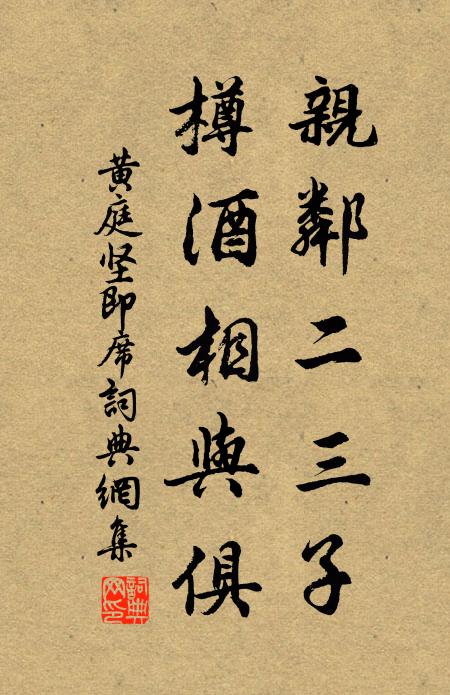 親鄰二三子
樽酒相與俱
黄庭坚即席詞典網集
詞典网印